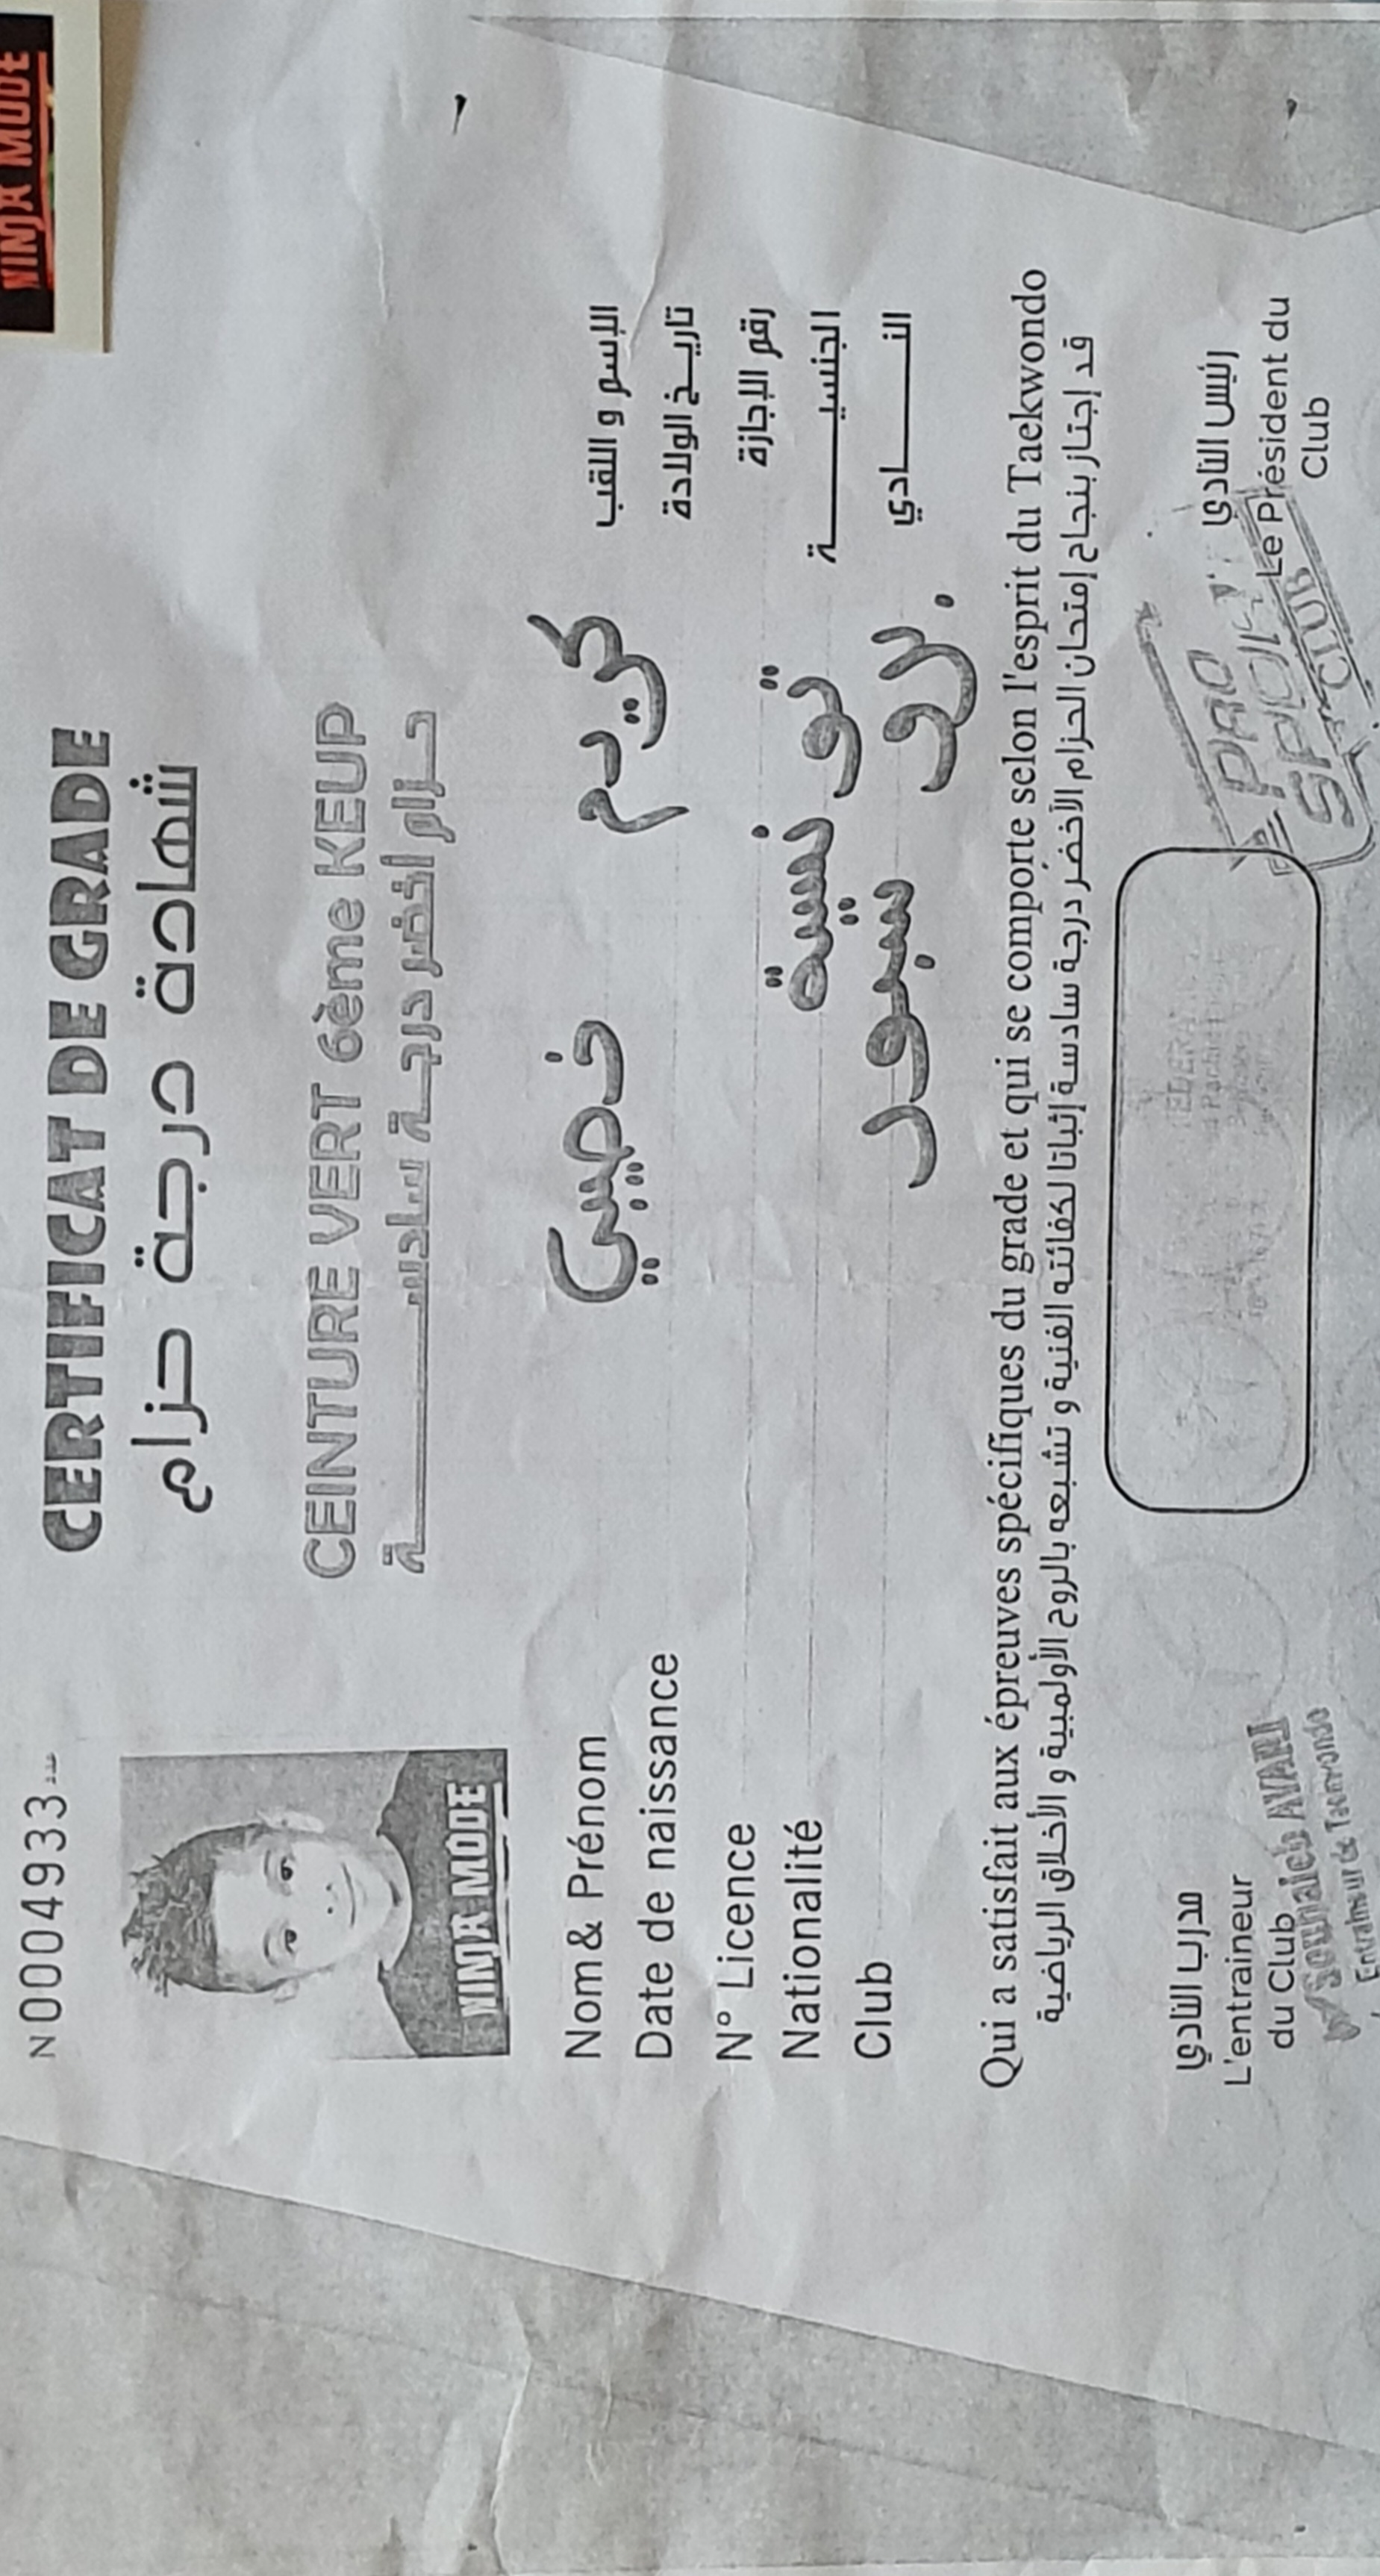 NINJA MODE
N 0004933
CERTIFICAT DE GRADE
شهادة درجة حزام
CEINTURE VERT 6ème KEUP
حزام أخضر درجة سادسة
NINJA MODE
Nom & Prénom كريم خصيبي الإسم و اللقب
Date de naissance تاريخ الولادة
N° Licence رقم الإجازة
Nationalité تونسية الجنسية
Club برو سبور النادي
Qui a satisfait aux épreuves spécifiques du grade et qui se comporte selon l'esprit du Taekwondo
قد إجتاز بنجاح إمتحان الحزام الأخضر درجة سادسة إثباتا لكفائته الفنية و تشبعه بالروح الأولمبية و الأخلاق الرياضية
مدرب النادي
L'entraineur
du Club
Entraineur de Taekwondo
رئيس النادي
Le Président du
Club
PRO
SPORT
CLUB